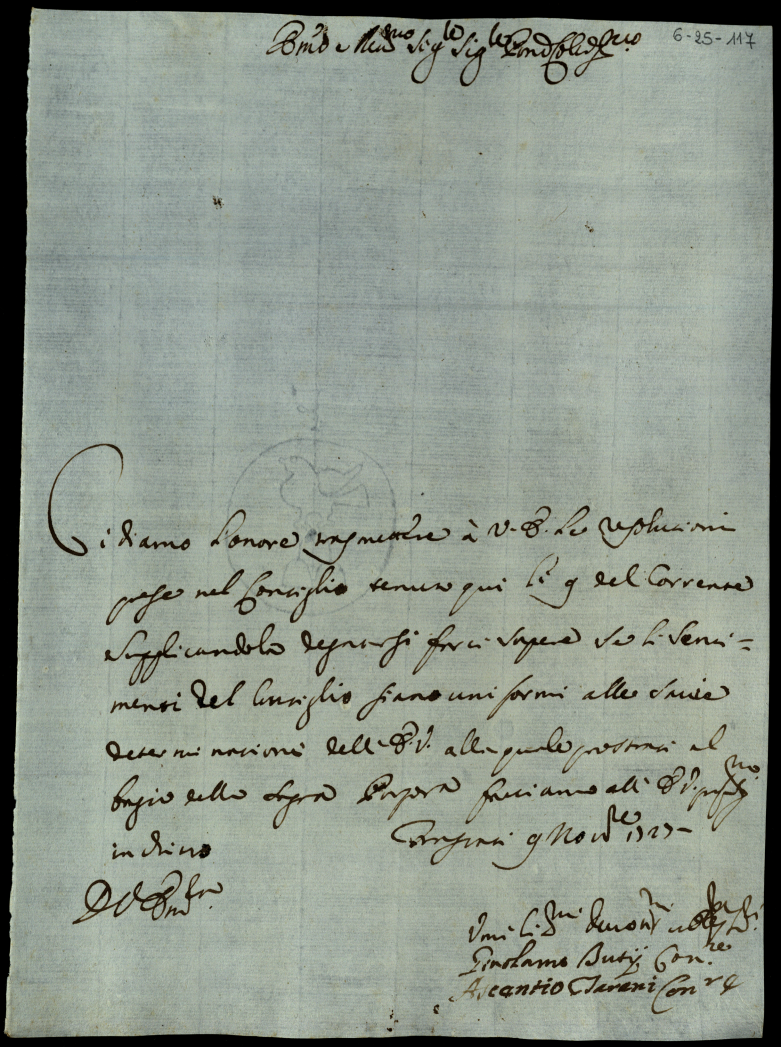 6-25-117
Em.o e Rev.mo Sig.re Sig.re Pron Col.mo
Ci diamo l'onore trasmettere à V. E. le resolucioni
prese nel Consiglio tenuto qui li 9 del Corrente
supplicandola degnarsi farci sapere se li senti=
menti del Consiglio siano uniformi alle Savie
determinazioni dell'E. V. alla quale prostrati al
bagio della Sagra Porpora facciamo all'E. V. profd.mo
inchino
9 Nov.re 1727
D V Em.za
Umi.li.mi devot.mi
Girolamo Butij Con.re
Ascantio Tarani Con.re